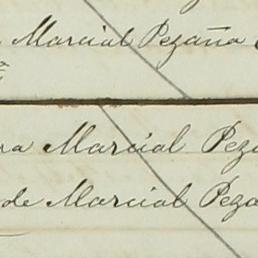 Marcial Pezaña
ra Marcial Pez
de Marcial Peza